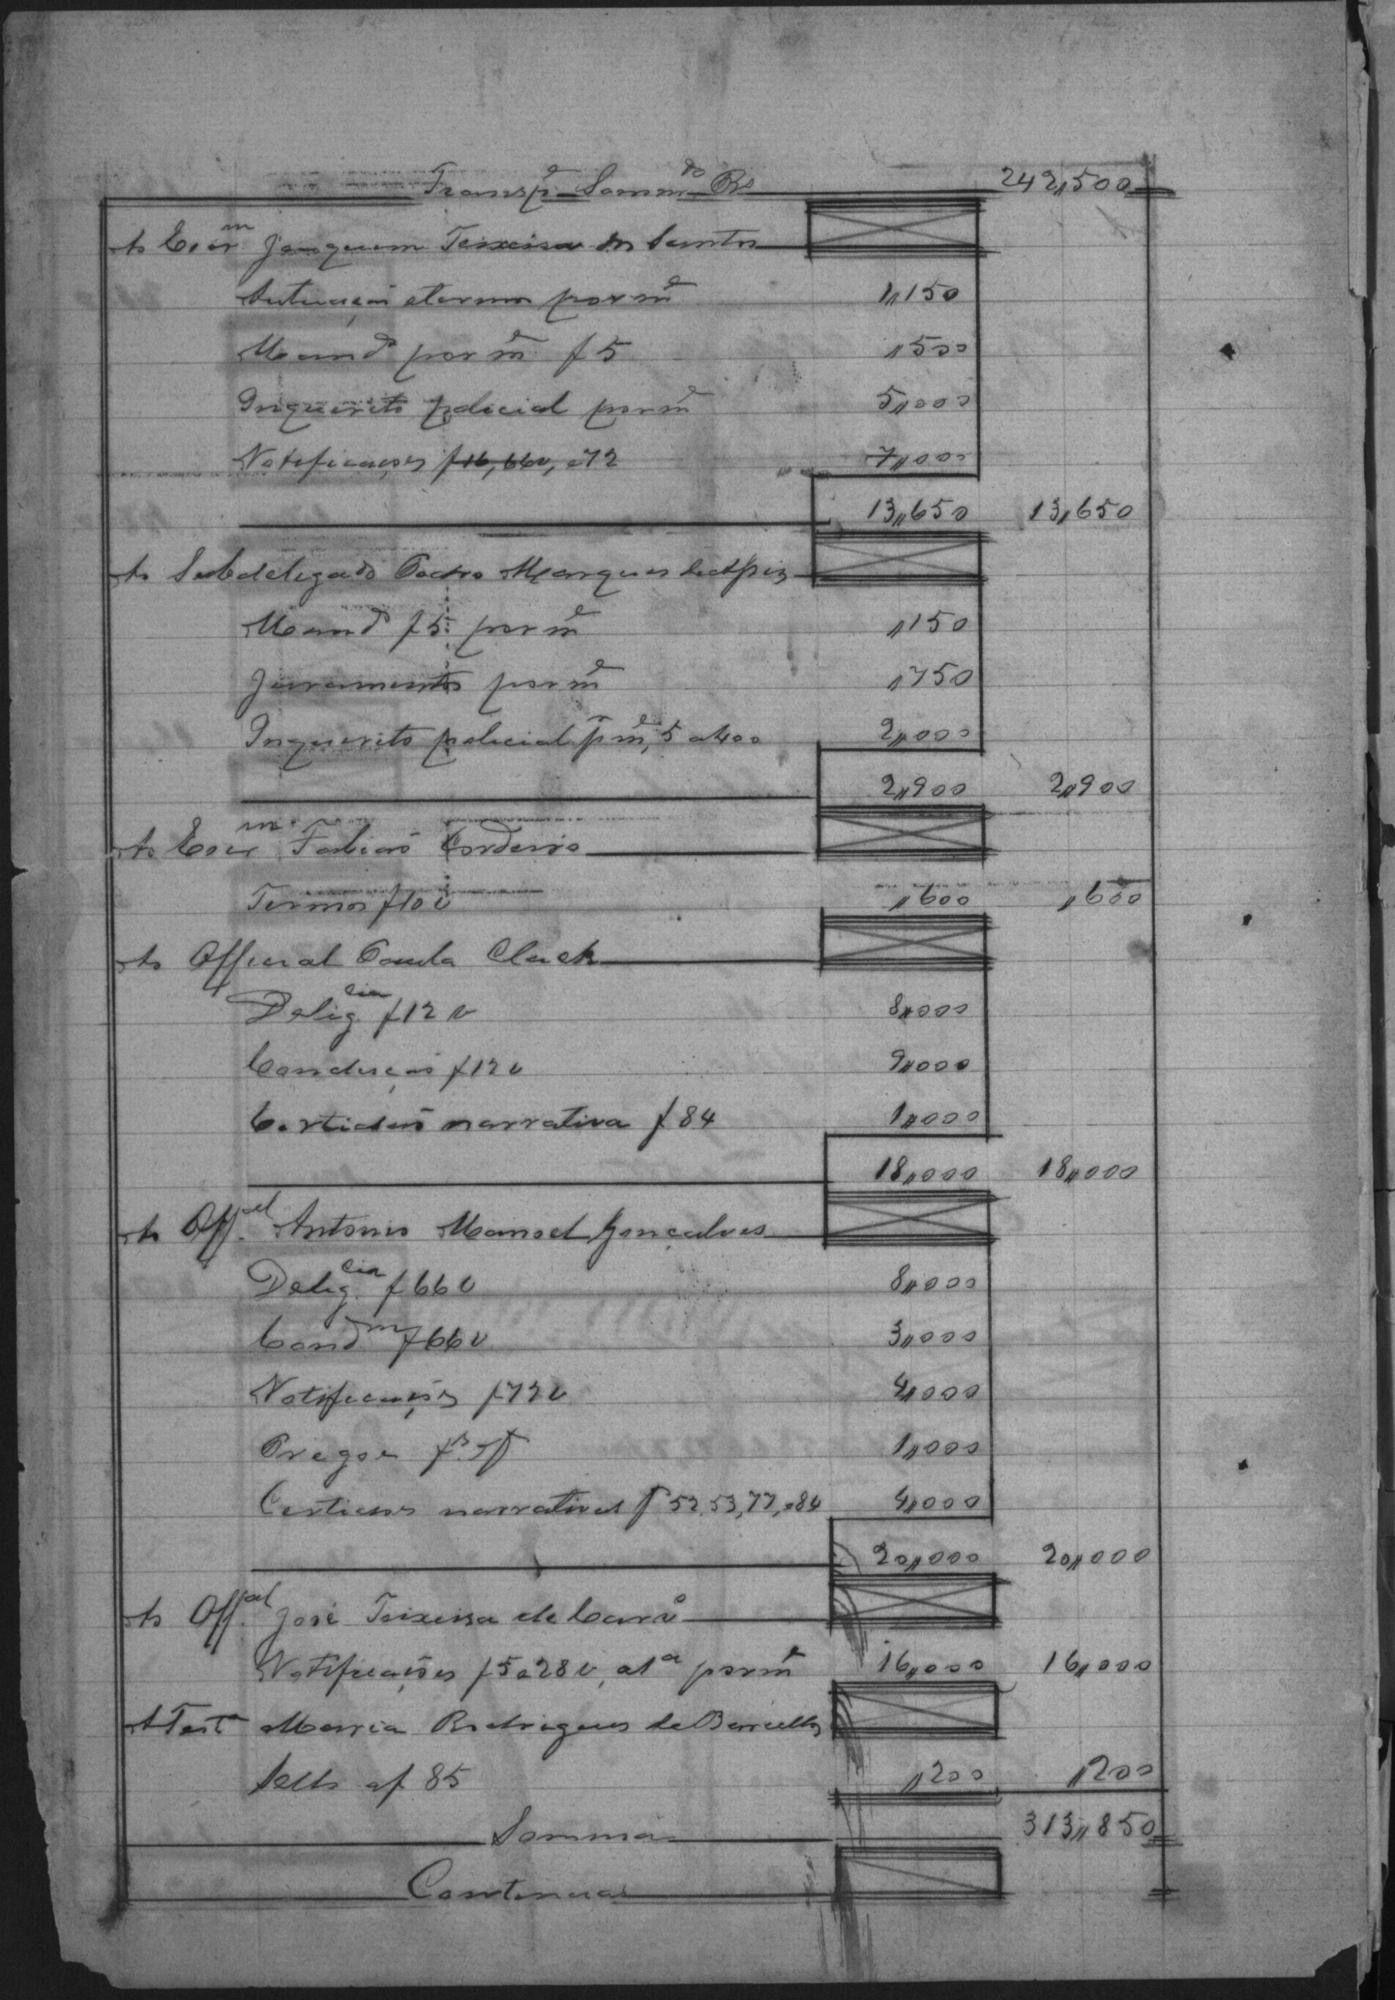 Transpe Sommdo Rs 242,,500
Ao Escrm Joaquim Teixeira dos Santos
Autuação e termos por me 1,,150
Mando por me f 5 ,,500
Inquerito policial por me 5,,000
Notificações f 16, 66v, e 72 7,,000
13,,650 13,650
Ao Subdelegado Pedro Marques
Mando f 5 por me ,,150
Juramentos por me ,,750
Inquerito policial pr me, 5 a 400 2,,000
2,,900 2,,900
Ao Escrm Fabião Cordeiro
Termos f 10 v ,,600 ,,600
Ao Official Paula Clack
Deligcia f 12 v 8,,000
Conducção f 12 v 9,,000
Certidão narrativa f 84 1,,000
18,,000 18,,000
Ao Offal Antonio Manoel Gonçalves
Deligcia f 66 v 8,,000
Condm f 66 v 3,,000
Notificações f 72 v 4,,000
Pregoe 1,,000
Certiões narrativas f 52, 53, 77, e 84 4,,000
20,,000 20,,000
Ao Offal José Teixeira de
Notificações f 5 e 28 v, a 1a por me 16,,000 16,,000
A Testa Maria Rodrigues de Barcellos
Sello af 85 ,,200 ,,200
Somma 313,,850
Continua